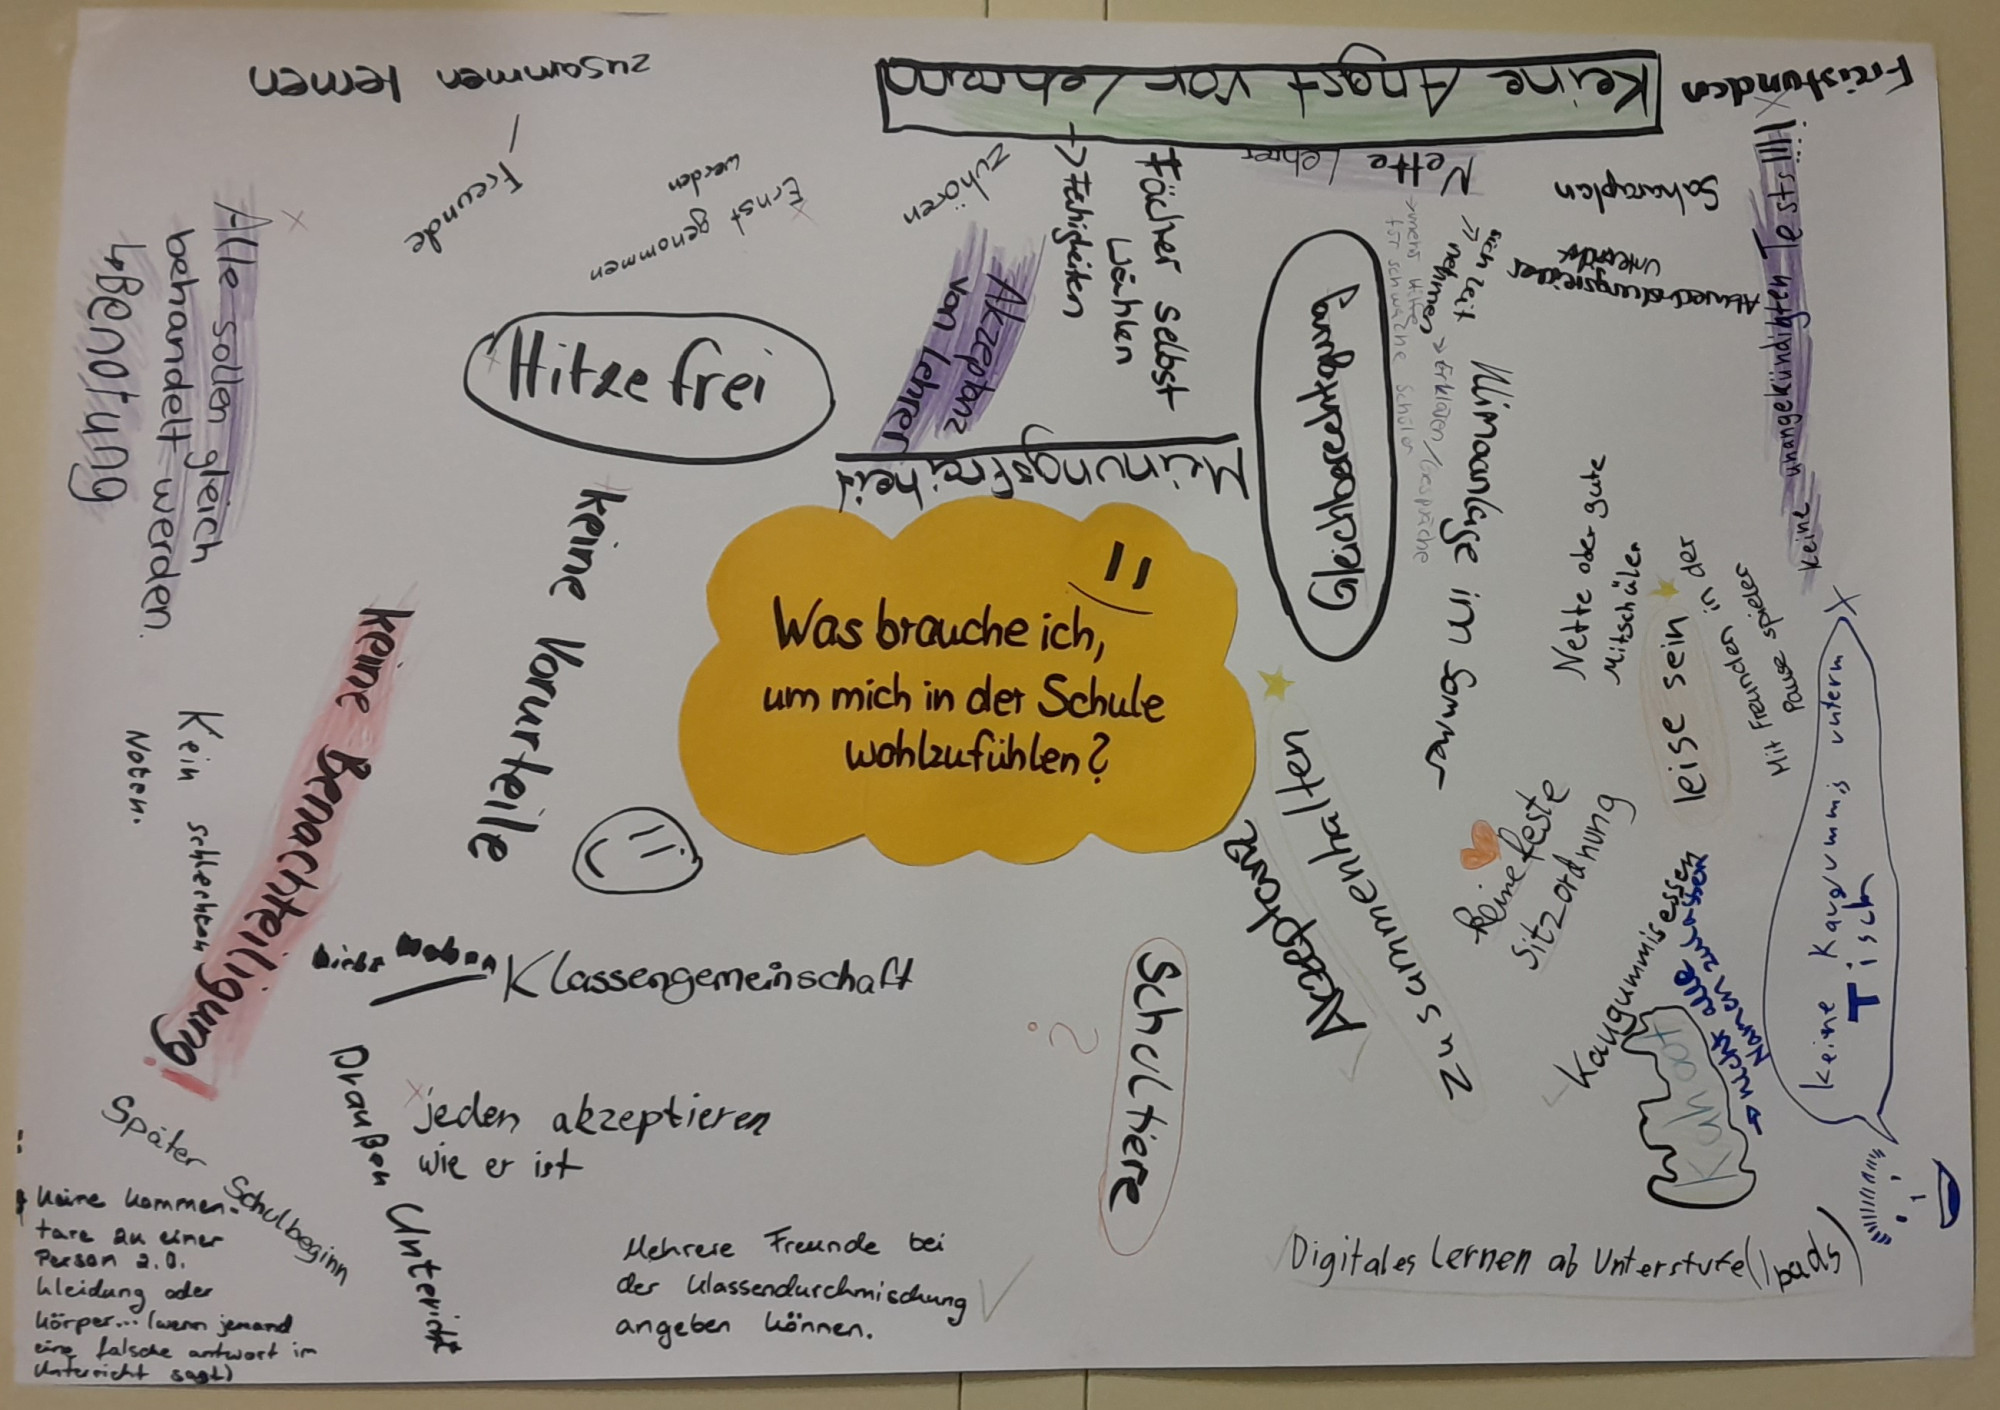 Was brauche ich,
um mich in der Schule
wohlzufühlen?
zusammen lernen
Freunde
Keine Angst vor Lehrern
Freistunden
Nette Lehrer
sich Zeit
nehmen
> Erklären/Gespräche
Saharaplan
Unterricht
keine unangekündigten Tests!!!
Ernst genommen
werden
zuhören
Akzeptanz
von Lehrer
Fächer selbst
wählen
-> Fähigkeiten
Meinungsfreiheit
Gleichberechtigung
Klimaanlage im Sommer
Hitzefrei
Alle sollen gleich
behandelt werden.
↳ Benotung
keine Vorurteile
keine Benachteiligung!
Kein schlechen
Noten.
Nette oder gute
Mitschüler
leise sein
Mit Freunden in der
Pause spielen
keine Kaugummis unterm
Tisch
keine feste
Sitzordnung
Kaugummis essen
Kahoot
→ nicht alle
Namen zulassen
Zusammenhalten
Akzeptanz
Schultiere
?
Klassengemeinschaft
jeden akzeptieren
wie er ist
Draußen Untericht
Später Schulbeginn
keine kommen-
tare zu einer
Person z.B.
kleidung oder
körper... (wenn jemand
eine falsche antwort im
Unterricht sagt)
Mehrere Freunde bei
der Klassendurchmischung
angeben können.
Digitales Lernen ab Unterstufe (Ipads)